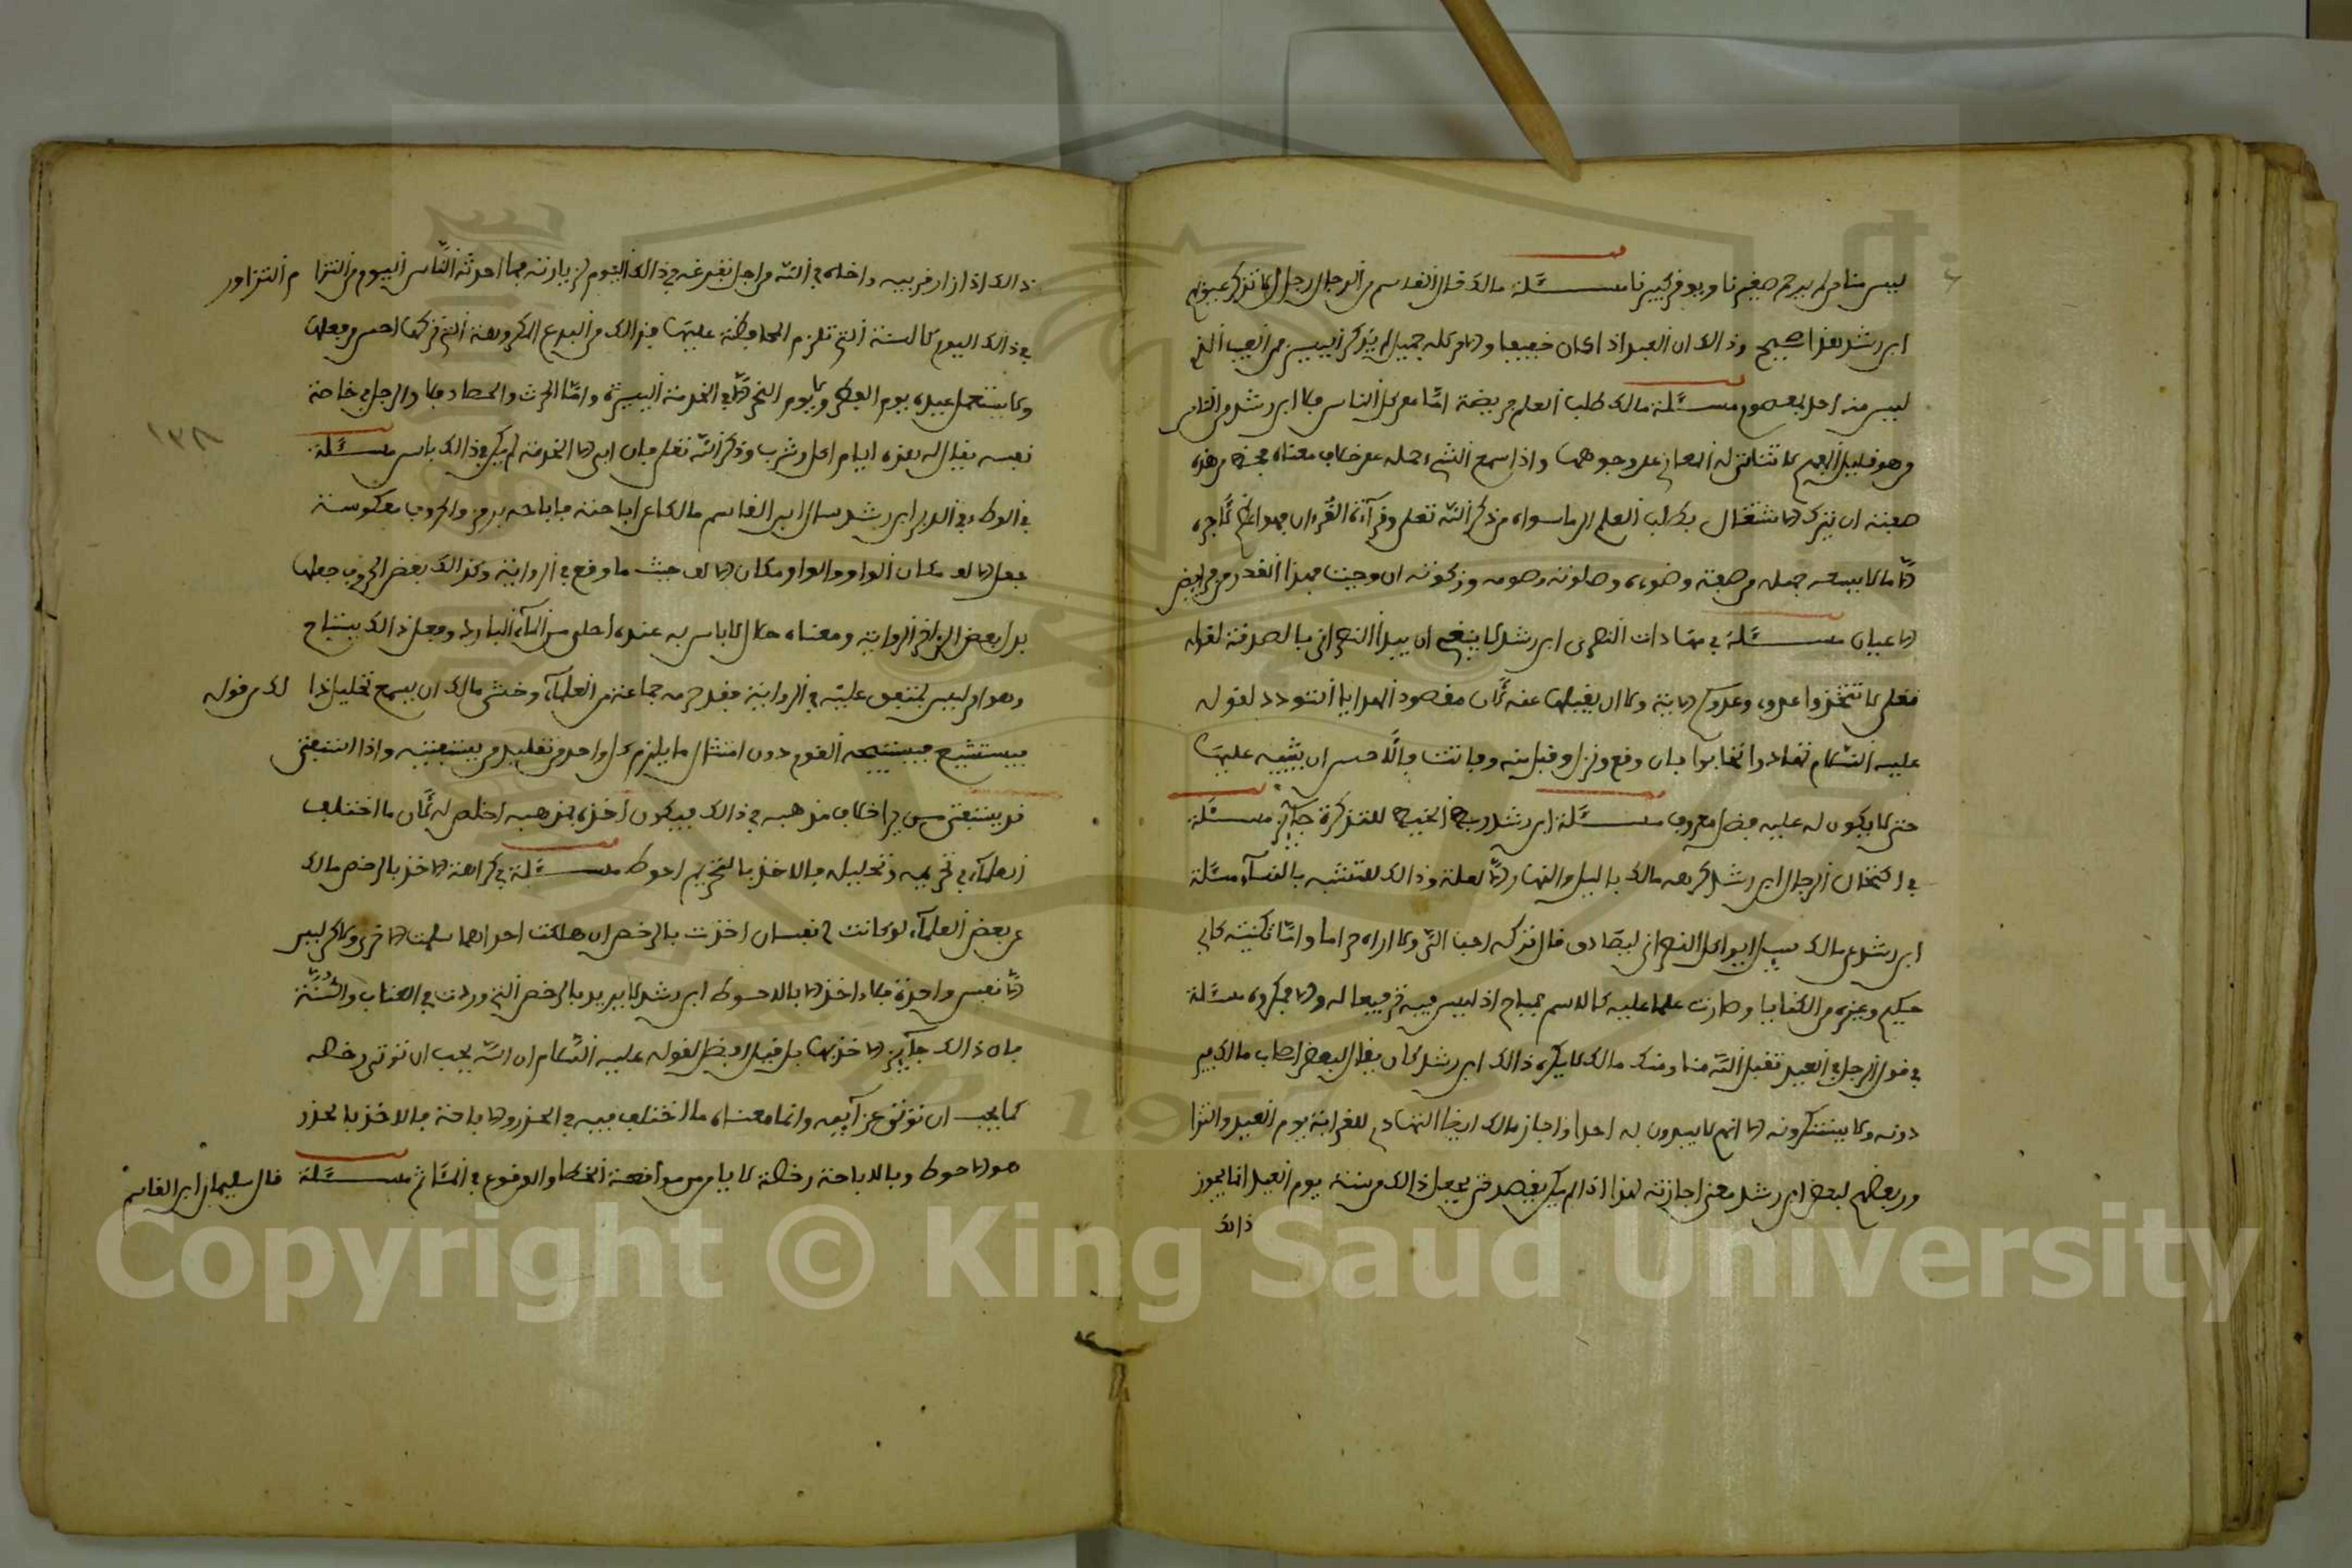 ليس منا من لم يرحم صغيرنا ويوقر كبيرنا مسئلة مالك قال القاسم من الرجال رجال لا تذكر عيوبهم
ابن رشد هذا صحيح وذالك ان العبد اذا كان خفيفا والامر كله جميل لم يذكر اليسير من العيب الذي
ليس منه احد بمعصوم مسئلة مالك طلب العلم فريضة اما على كل الناس فلا ابن رشد من الناس
من هو قليل الفهم لا تتاتى له المعاني على وجوهها واذا سمع الشيء حمله على خلاف معناه فحظ من هذه
صفته ان يترك الاشتغال بطلب العلم الى ما سواه من ذكر الله تعلى وقرآءة القرءان فهو اعظم لاجره
الا ما لا يسعه جهله من صفة وضوءه وصلوته وصومه وزكوته ان وجبت فهذا القدر من فرايض
الاعيان مسئلة في مهادات النصرى ابن رشد لا ينبغي ان يبدأ النصراني بالصدقة لقوله
تعلى لا تتخذوا عدوي وعدوكم الاية ولا ان يقبلها عنه لان مقصود الهدايا التودد لقوله
عليه السلام تهادوا تحابوا فان وقع ونزل وقبل منه وفاتت فالاحسن ان يثيبه عليها
حتى لا يكون له عليه فضل معروف مسئلة ابن رشد ربط الخيط للتذكرة جآئز مسئلة
في اختخان الرجال ابن رشد كرهه مالك بالليل والنهار الا لعلة وذالك للتشبه بالنسآء مسئلة
ابن رشد عن مالك سيل ايواكل النصراني ليصادق قال تركه احب الي ولا اراه حراما واما تكنيته بابي
حكيم وغيره من الكنايا وصارت علما عليه كالاسم فمباح اذ ليس فيه ترفيعا له والا فمكروه مسئلة
في قول الرجل في العيد تقبل الله منا ومنك مالك لا يكره ذالك ابن رشد كان يقال لبعض اصحاب مالك فير
دونه ولا يبتدئونه الا انهم لا يبدون به احدا واجاز مالك ايضا التهادي للقرابة يوم العيد والتزا
ور بعضهم لبعض ابن رشد معنى اجازته لهذا اذا لم يكن يقصد حتى يجعل ذالك من سنة يوم العيد انما يجوز
ذالك
ذالك اذا زار قريبه واخاه في الله من اجل تفرغه في ذالك اليوم لزيارته فما احدثه الناس اليوم من التزا م التزاور
في ذالك اليوم كالسنة التي تلزم المحافظة عليها فذالك من البدع المكروهة التي تركها احسن من فعلها
ولا يستعمل عبيده يوم الفطر ولا يوم النحر الا في الخدمة اليسيرة واما الحرث والحصاد فلا والرجل في خاصة
نفسه يقال له هذه ايام اكل وشرب وذكر الله تعلى فان ابى الا الخدمة لم يكن في ذالك باس مسئلة
في الوطء في الدبر ابن رشد سال ابن القاسم مالكا عن اباحته فاباحه برمز والحروف معكوسة
جعل الالف مكان الواو والواو مكان الالف حيث ما وقع في الرواية وكذالك بعض الحروف جعلها
بدل بعض الى اخر الرواية ومعناه حلال لا باس به عنده احلى من المآء البارد وفعل ذالك بيننا
وهو امر ليس بمتفق عليه في الرواية فقد حرمه جماعة من العلمآء وخشي مالك ان يسمع تحليل ذا لك من قوله
فيستشيع فيستبيحه القوم دون امتثال ما يلزم كل واحد من تقليد من يستفتيه واذا استفتى
فد يستفتي من يرى خلاف مذهبه في ذالك فيكون اخذه بمذهبه اخلص له لان ما اختلف
العلمآء في تحريمه وتحليله فالاخذ بالتحريم احوط مسئلة في كراهة الاخذ بالرخص مالك
عن بعض العلمآء لو كانت لي نفسان اخذت بالرخص ان هلكت احداهما سلمت الاخرى ولاكن ليس
الا نفس واحدة فلا اخذ الا بالاحوط ابن رشد لا يريد بالرخص التي وردت في الكتاب والسنة
فان ذالك جآئز الاخذ بها بل قيل افضل لقوله عليه السلام ان الله يحب ان توتى رخصه
كما يحب ان توتى عزآيمه وانما معناه ما اختلف فيه في الحذر والاباحة فالاخذ بالحذر
هو الاحوط وبالاباحة رخصة لا يامن من مواقعة الخطا والوقوع في الماثم مسئلة قال سليمان ابن القاسم
١٣٨
Copyright © King Saud University
1957